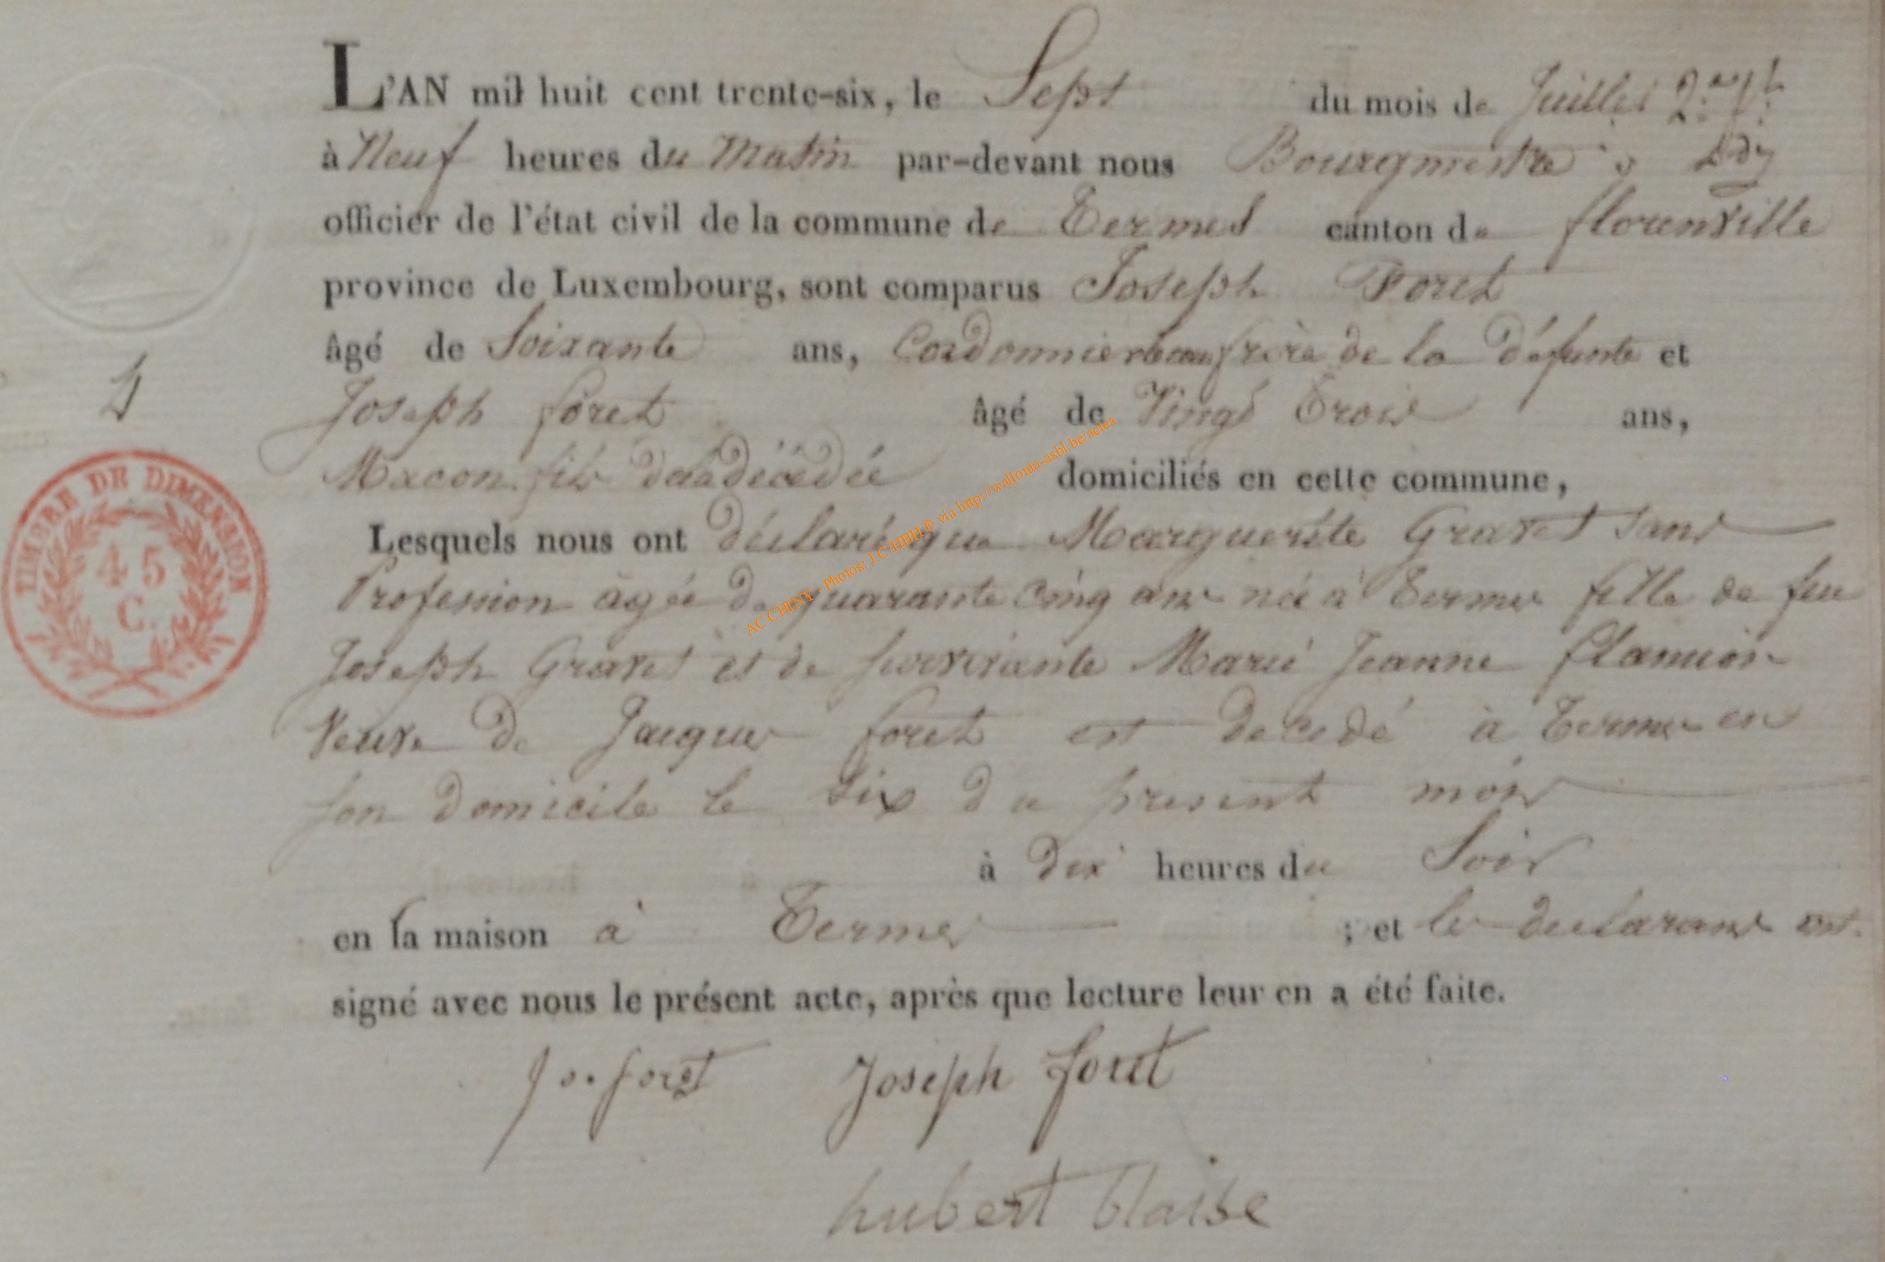 L'AN mil huit cent trente-six, le Sept du mois de Juillet
à Neuf heures du Matin par-devant nous Bourgmestre
officier de l'état civil de la commune de Termes canton de florenville
province de Luxembourg, sont comparus Joseph Foret
âgé de Soixante ans, Cordonnier beaufrère de la défunte et
Joseph foret âgé de Vingt Trois ans,
Macon fils de la décédée domiciliés en cette commune,
Lesquels nous ont déclaré que Marguerite Gravet sans
Profession agée de quarante cinq ans née à Termes fille de feu
Joseph Gravet et de survivante Marie Jeanne flamion
Veuve de Jacques foret est decedé à Termes en
son domicile le Six du present mois
à dix heures du Soir
en la maison à Termes ; et les declarans ont
signé avec nous le présent acte, après que lecture leur en a été faite.
Jo. foret Joseph foret
hubert blaise
4
TIMBRE DE DIMENSION
45
C.
AC CHINY - Photos: J.C. via http://wallonia-asbl.be/actes